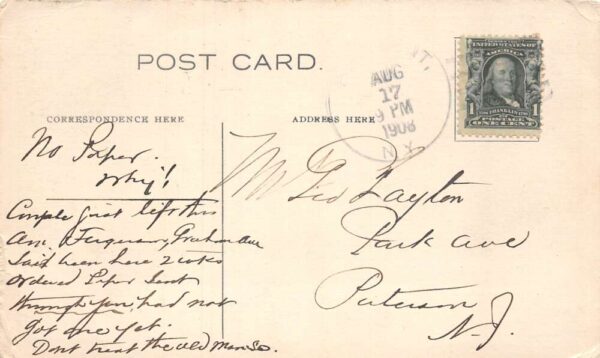 POST CARD.
CORRESPONDENCE HERE
ADDRESS HERE
AUG
17
9 PM
1908
N.Y.
UNITED STATES OF
AMERICA
1 FRANKLIN 1
POSTAGE
ONE CENT
No Paper.
Why!
Couple just left this
am. Ferguson, Graham Ave
Said been here 2 weeks
ordered Paper Sent
through you, had not
got one yet.
Dont treat the old Man So.
Mr Geo Layton
Park Ave
Paterson
N.J.